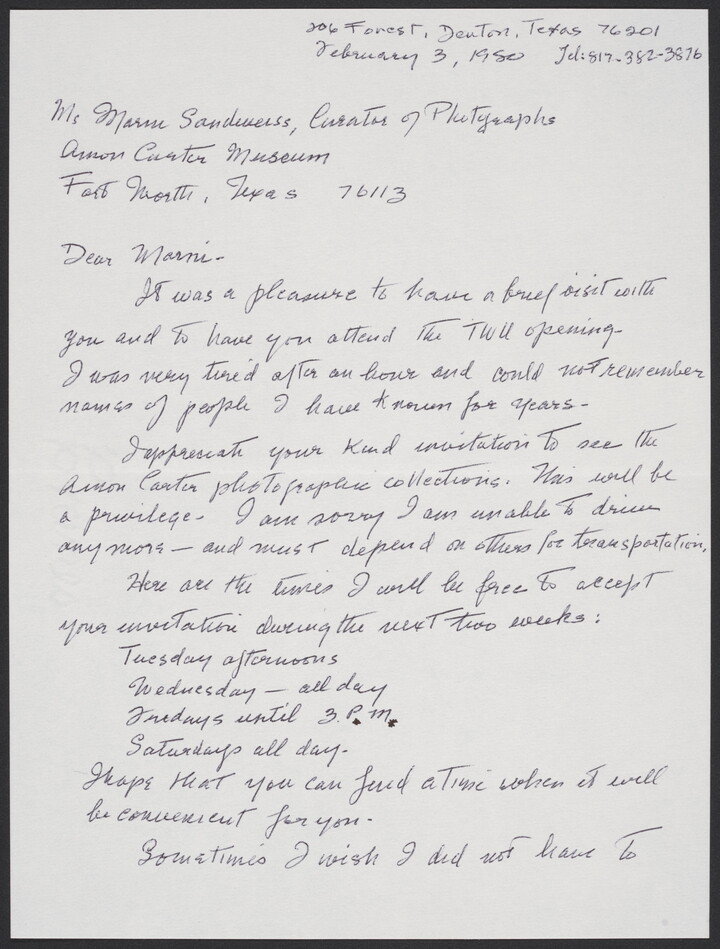 206 Forest, Denton, Texas 76201
February 3, 1980 Tel: 817-382-3876
Ms Marni Sandweiss, Curator of Photographs
Amon Carter Museum
Fort Worth, Texas 76113
Dear Marni-
It was a pleasure to have a brief visit with
you and to have you attend the TWU opening-
I was very tired after an hour and could not remember
names of people I have known for years-
I appreciate your kind invitation to see the
Amon Carter photographic collections. This will be
a privilege- I am sorry I am unable to drive
anymore — and must depend on others for transportation.
Here are the times I will be free to accept
your invitation during the next two weeks:
Tuesday afternoons
Wednesday — all day
Fridays until 3. P.M.
Saturdays all day-
I hope that you can find a time when it will
be convenient for you-
Sometimes I wish I did not have to